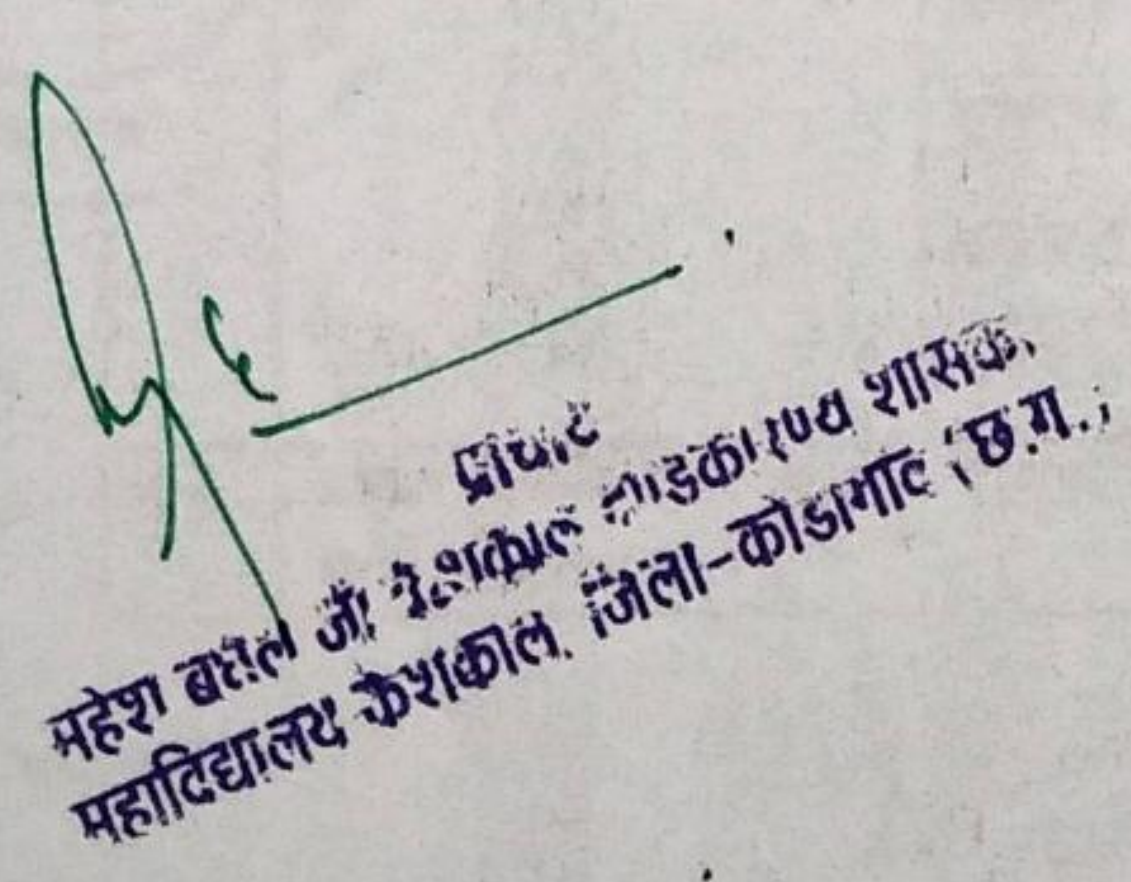 प्राचार्य
महेश बघेल जी केशकाल दण्डकारण्य शासकी.
महाविद्यालय केशकाल, जिला-कोंडागांव (छ.ग.)